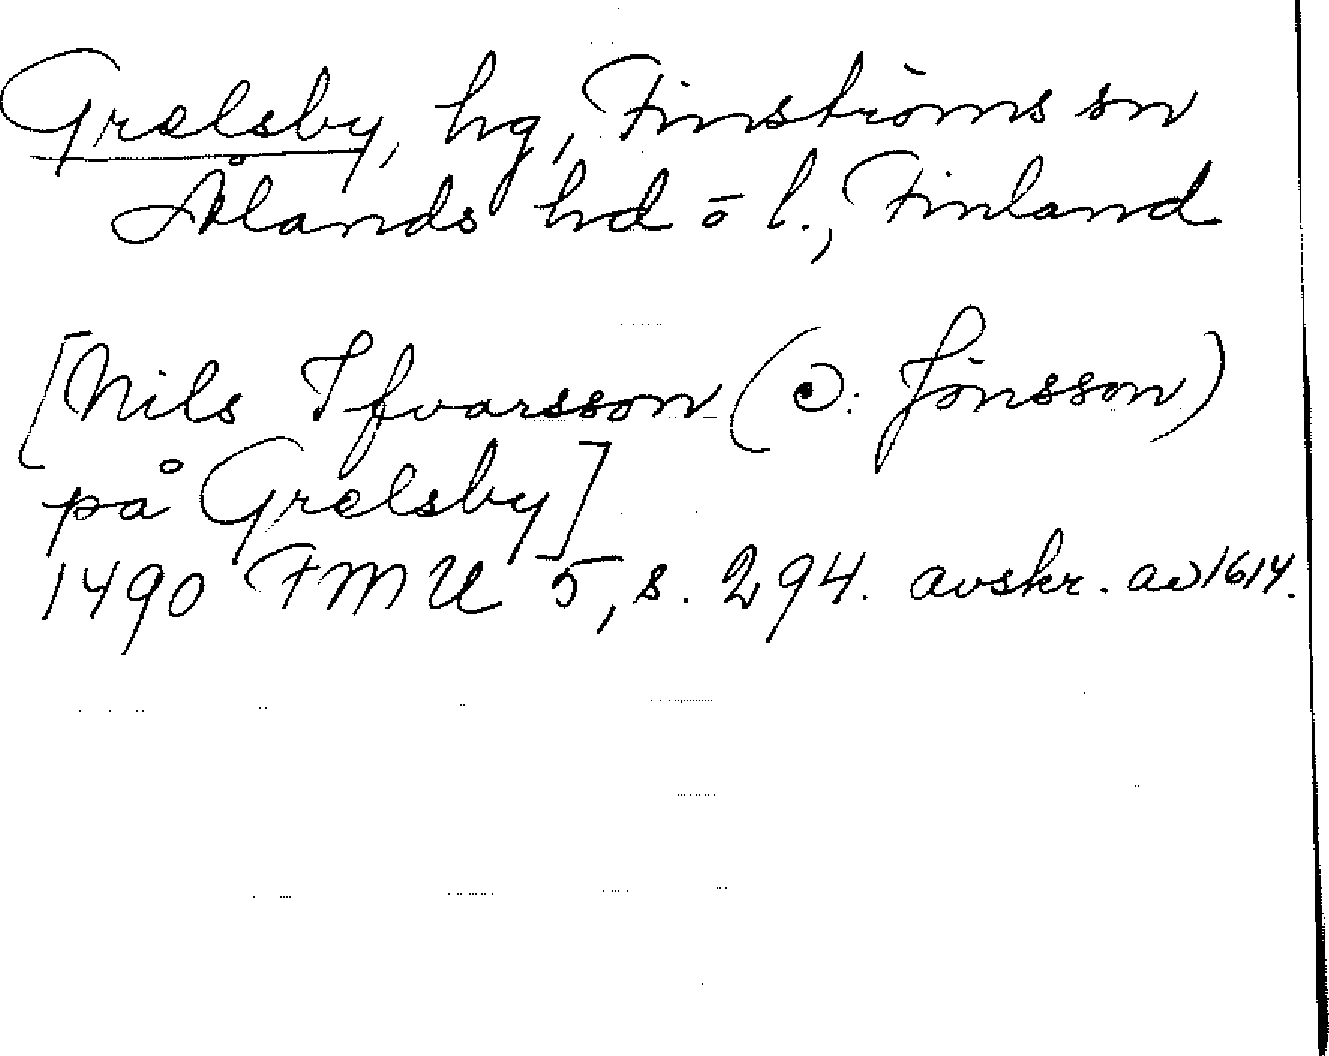 Grelsby, hg, Finströms sn
Ålands hd o l., Finland
[Nils Ifvarsson (ɔ: Jönsson)
på Grelsby]
1490 FMU 5, s. 294. avskr. av 1614.